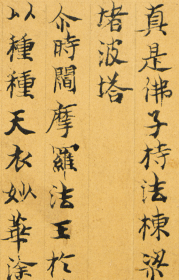 真是佛子持法棟梁
堵波塔
尒時閻摩羅法王於
以種種天衣妙華塗